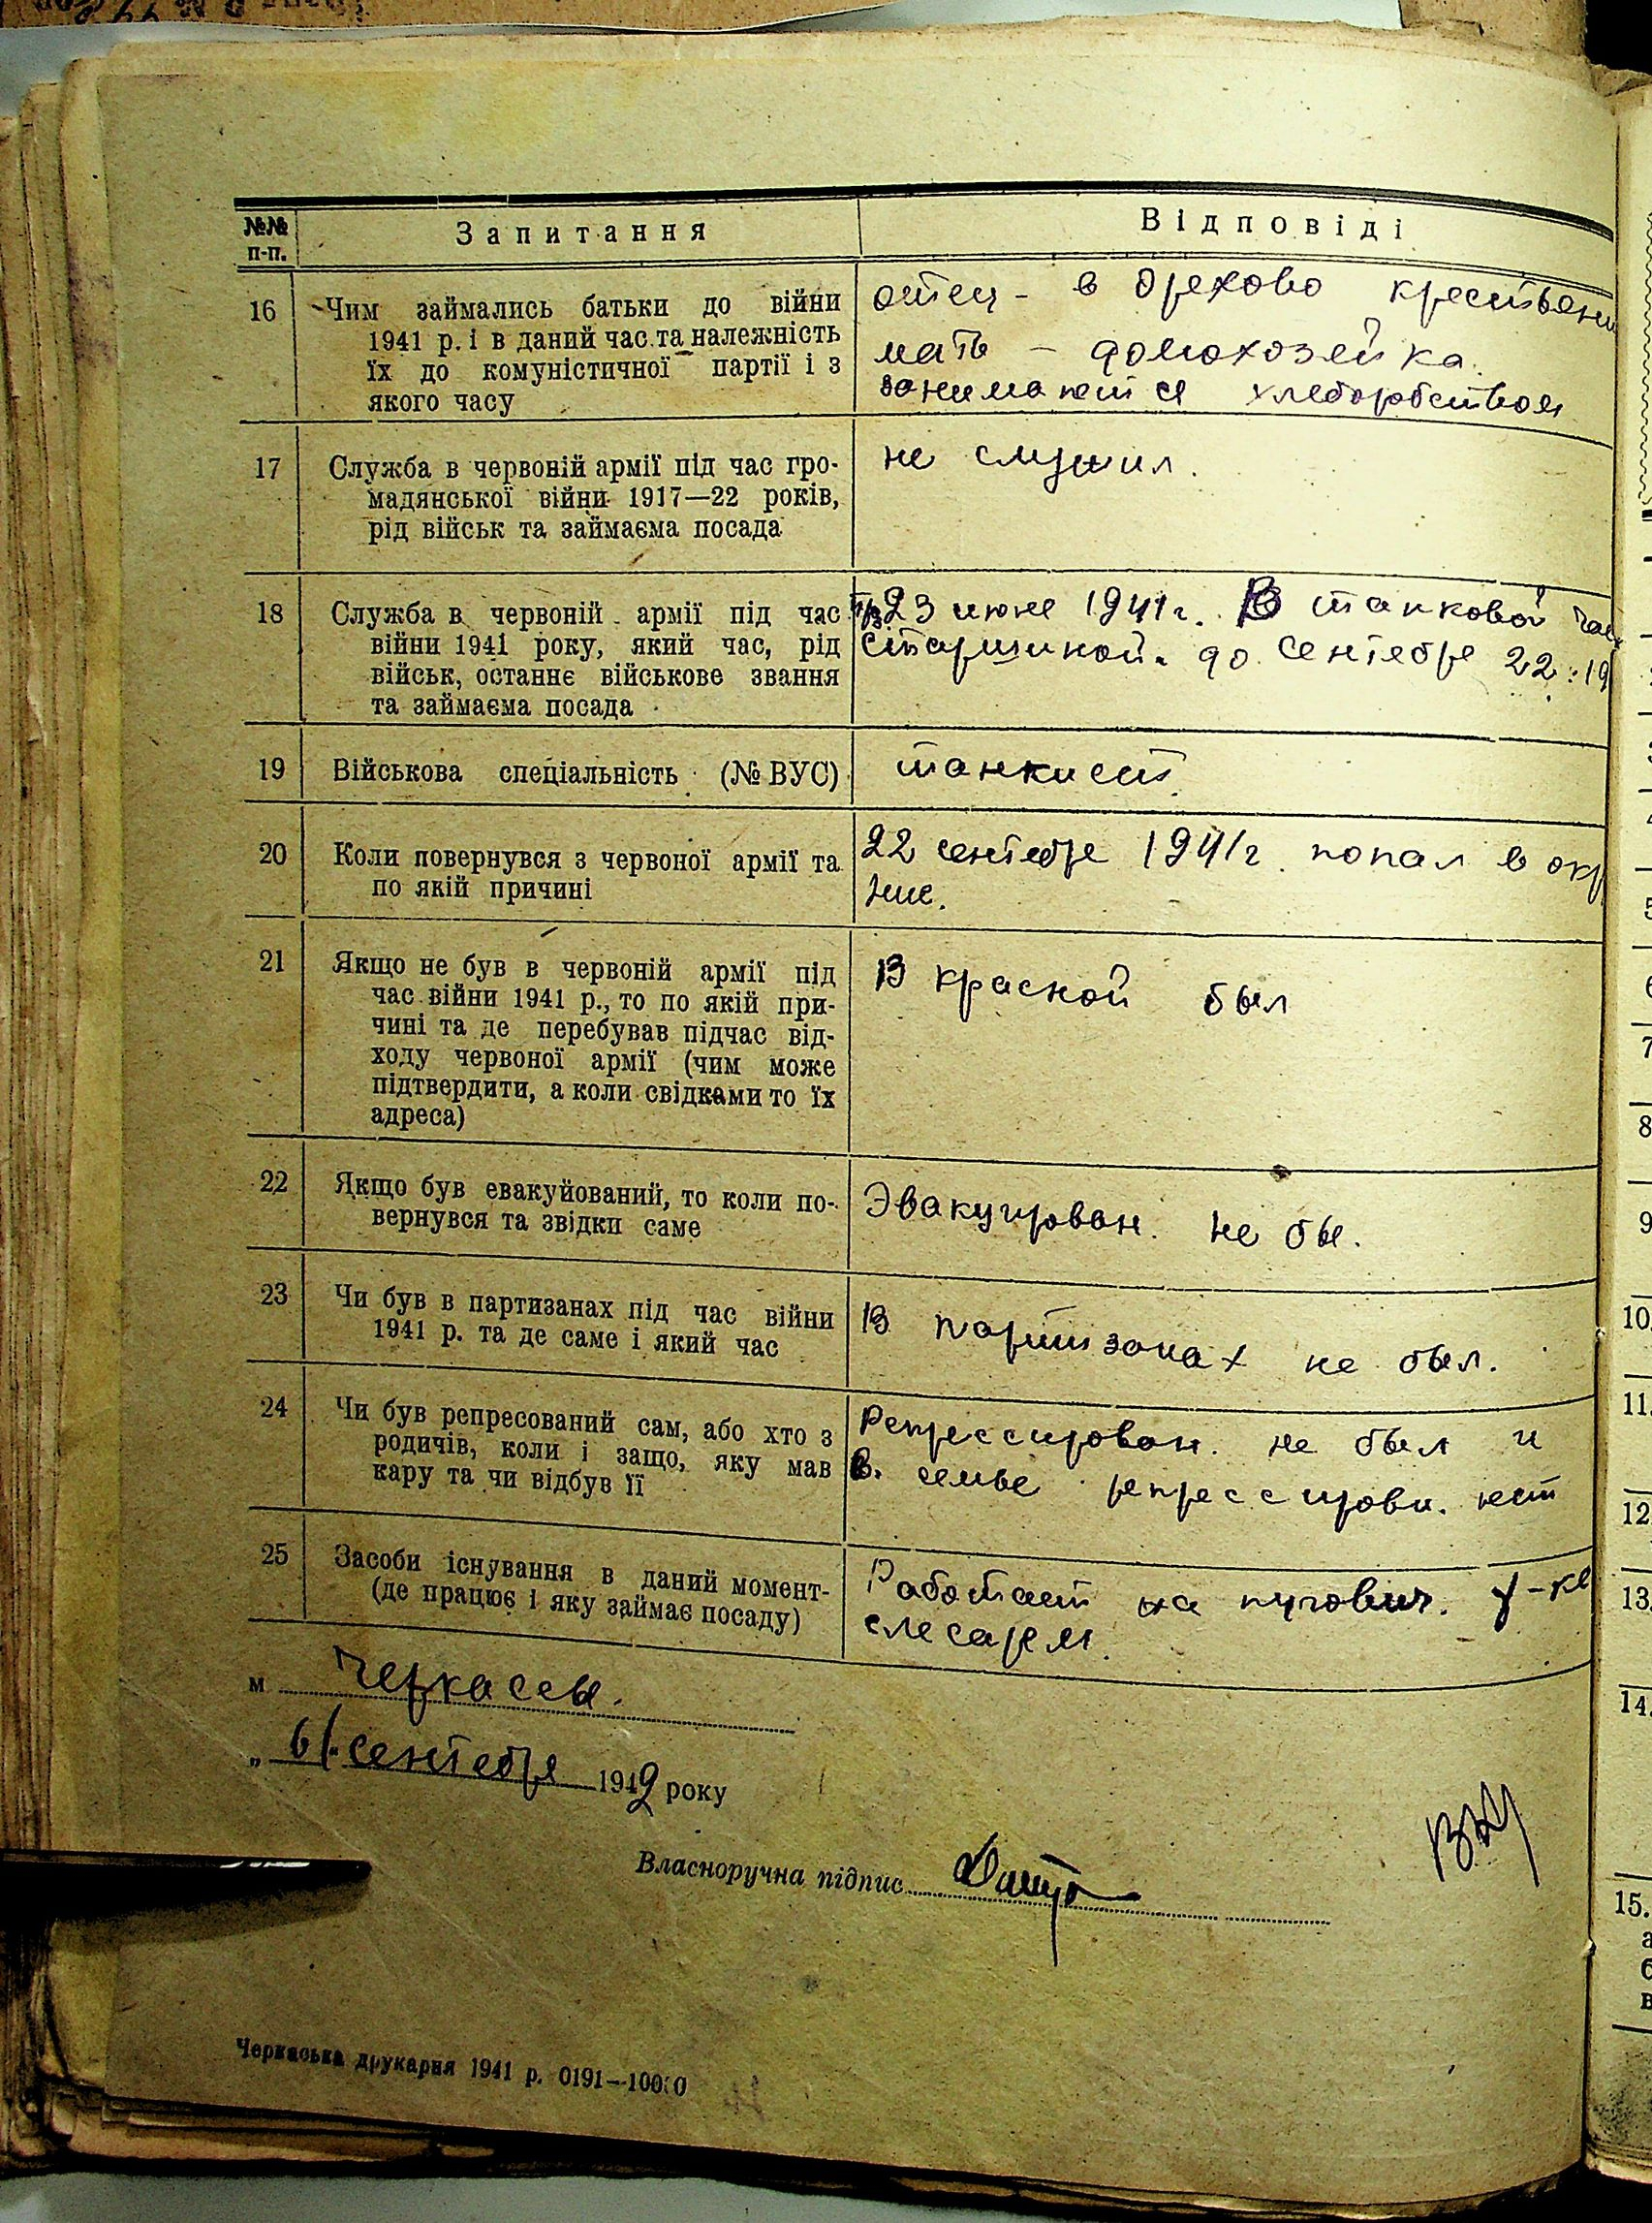 №№ п-п. Запитання Відповіді
16 Чим займались батьки до війни
1941 р. і в даний час та належність
їх до комуністичної партії і з
якого часу
отец - в Орехово крестьяни
мать - домохозейка.
занимаются хлеборобством
17 Служба в червоній армії під час гро-
мадянської війни 1917—22 років,
рід військ та займаєма посада
не служил.
18 Служба в червоній армії під час
війни 1941 року, який час, рід
військ, останнє військове звання
та займаєма посада
23 июне 1941 г. В танковой час
старшиной. до сентебре 22. 19
19 Військова спеціальність (№ ВУС)
танкист.
20 Коли повернувся з червоної армії та
по якій причині
22 сентебре 1941 г. попал в окр
ние.
21 Якщо не був в червоній армії під
час війни 1941 р., то по якій при-
чині та де перебував підчас від-
ходу червоної армії (чим може
підтвердити, а коли свідками то їх
адреса)
В красной был
22 Якщо був евакуйований, то коли по-
вернувся та звідки саме
Эвакуирован. не бы.
23 Чи був в партизанах під час війни
1941 р. та де саме і який час
В партизанах не был.
24 Чи був репресований сам, або хто з
родичів, коли і защо, яку мав
кару та чи відбув її
Репрессирован. не был и
в. семье репрессирови. нет
25 Засоби існування в даний момент-
(де працює і яку займає посаду)
Работает на пугович. ф-ке
слесарем.
м Черкассы.
„ 6/. сентебре 1942 року
Власноручна підпис
Черкаська друкарня 1941 р. 0191—10000
5
7
8
9
10.
11.
12.
13.
14.
15.
а
б
в